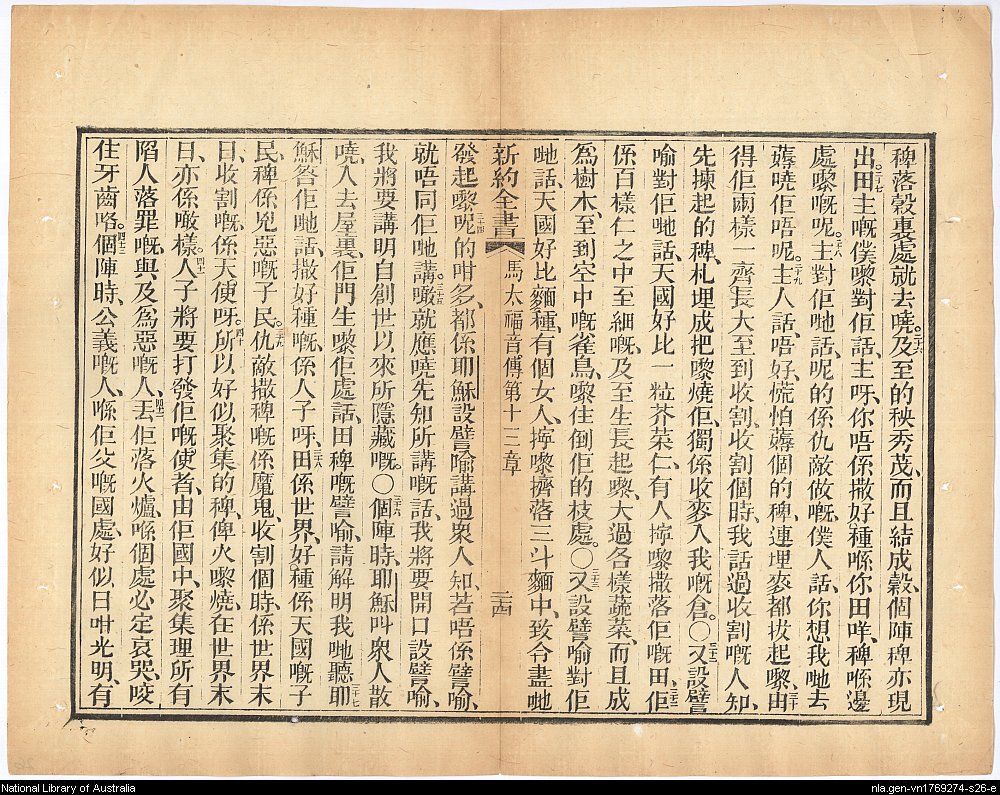 稗落穀裏處就去嘵、二十六及至的秧秀茂、而且結成穀、個陣稗亦現
出。二十七田主嘅僕嚟對佢話、主呀、你唔係撒好種喺你田咩、稗喺邊
處嚟嘅呢。二十八主對佢哋話、呢的係仇敵做嘅、僕人話、你想我哋去
薅嘵佢唔呢。二十九主人話、唔好、慌怕薅個的稗、連埋麥都拔起嚟。三十由
得佢兩樣一齊長大至到收割、收割個時、我話過收割嘅人知、
先揀起的稗、札埋成把嚟燒佢、獨係收麥入我嘅倉。〇三十一又設譬
喻對佢哋話、天國好比一粒芥菜仁、有人擰嚟撒落佢嘅田、三十二佢
係百樣仁之中至細嘅、及至生長起嚟、大過各樣蔬菜、而且成
爲樹木、至到空中嘅雀鳥、嚟住倒佢的枝處。〇三十三又設譬喻對佢
哋話、天國好比麵種、有個女人、擰嚟擠落三斗麵中、致令盡哋
新約全書 馬太福音傳第十三章 三四
發起嚟呢。三十四的咁多、都係耶穌設譬喻講過衆人知、若唔係譬喻、
就唔同佢哋講。三十五噉就應嘵先知所講嘅話、我將要開口設譬喻、
我將要講明自創世以來所隱藏嘅。〇三十六個陣時、耶穌叫衆人散
嘵、入去屋裏、佢門生嚟佢處話、田稗嘅譬喻、請解明我哋聽、三十七耶
穌答佢哋話、撒好種嘅、係人子呀、三十八田係世界、好種係天國嘅子
民、稗係兇惡嘅子民。三十九仇敵撒稗嘅係魔鬼、收割個時、係世界末
日、收割嘅、係天使呀。四十所以好似聚集的稗、俾火嚟燒、在世界末
日、亦係噉樣。四一人子將要打發佢嘅使者、由佢國中、聚集埋所有
陷人落罪嘅、與及為惡嘅人、四二丟佢落火爐、喺個處必定哀哭、咬
住牙齒咯。四三個陣時、公義嘅人、喺佢父嘅國處、好似日咁光明、有
National Library of Australia
nla.gen-vn1769274-s26-e